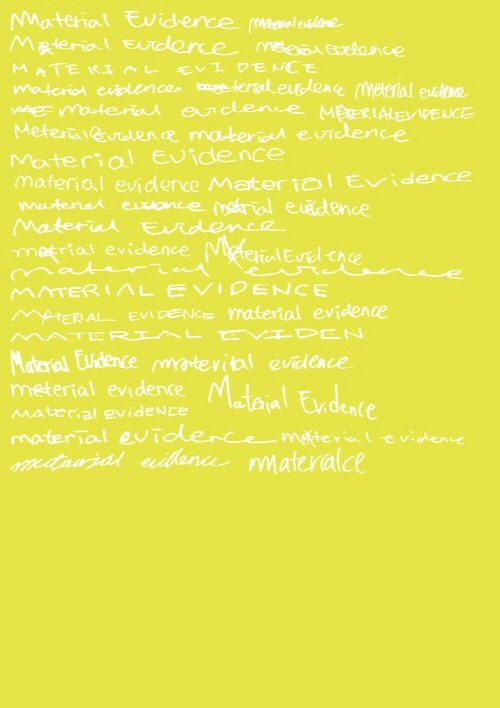 Material Evidence Material evidence
Material Evidence Material Evidence
MATERIAL EVIDENCE
material evidence material evidence Material evidence
material evidence MATERIAL EVIDENCE
Meterial Evidence material evidence
Material Evidence
material evidence Material Evidence
material evidence material evidence
Material Evidence
material evidence Material Evidence
material evidence
MATERIAL EVIDENCE
MATERIAL EVIDENCE material evidence
MATERIAL EVIDEN
Material Evidence materital evidence
meterial evidence Material Evidence
material evidence
material evidence material evidence
material evidence materialce